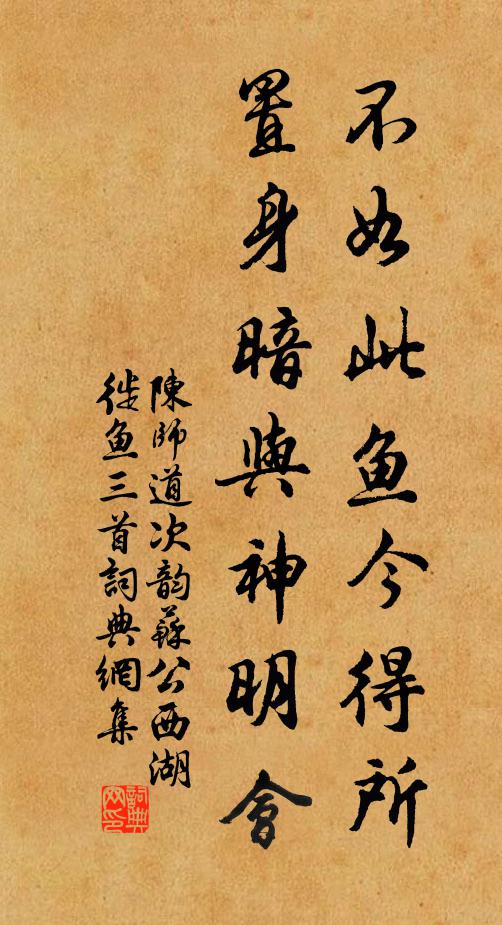 不如此鱼今得所
置身暗與神明會
陳師道次韵蘇公西湖
徙鱼三首詞典網集
詞典網印